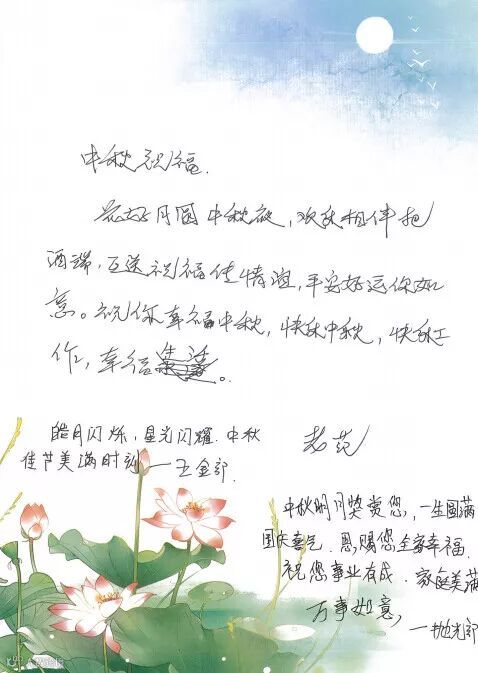 中秋祝福.
花好月圆中秋夜，欢欣相伴把
酒端，互送祝福佳情谊，平安好运你如
意。祝你幸福中秋，快乐中秋，快乐工
作，幸福生活。
老范
皓月闪烁，星光闪耀.中秋
佳节美满时刻——五金部.
中秋明月奖赏您,一生圆满
国庆喜气.恩赐您全家幸福.
祝您事业有成.家庭美满
万事如意,
——抛光部